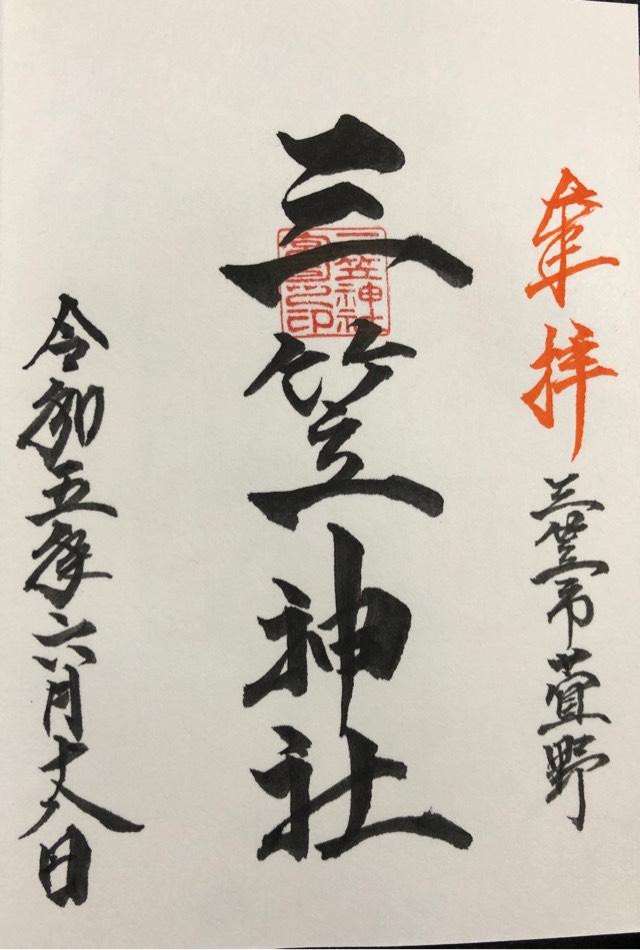 奉拝
三笠市萱野
三笠神社
三笠神社
宮司之印
令和五年六月十八日